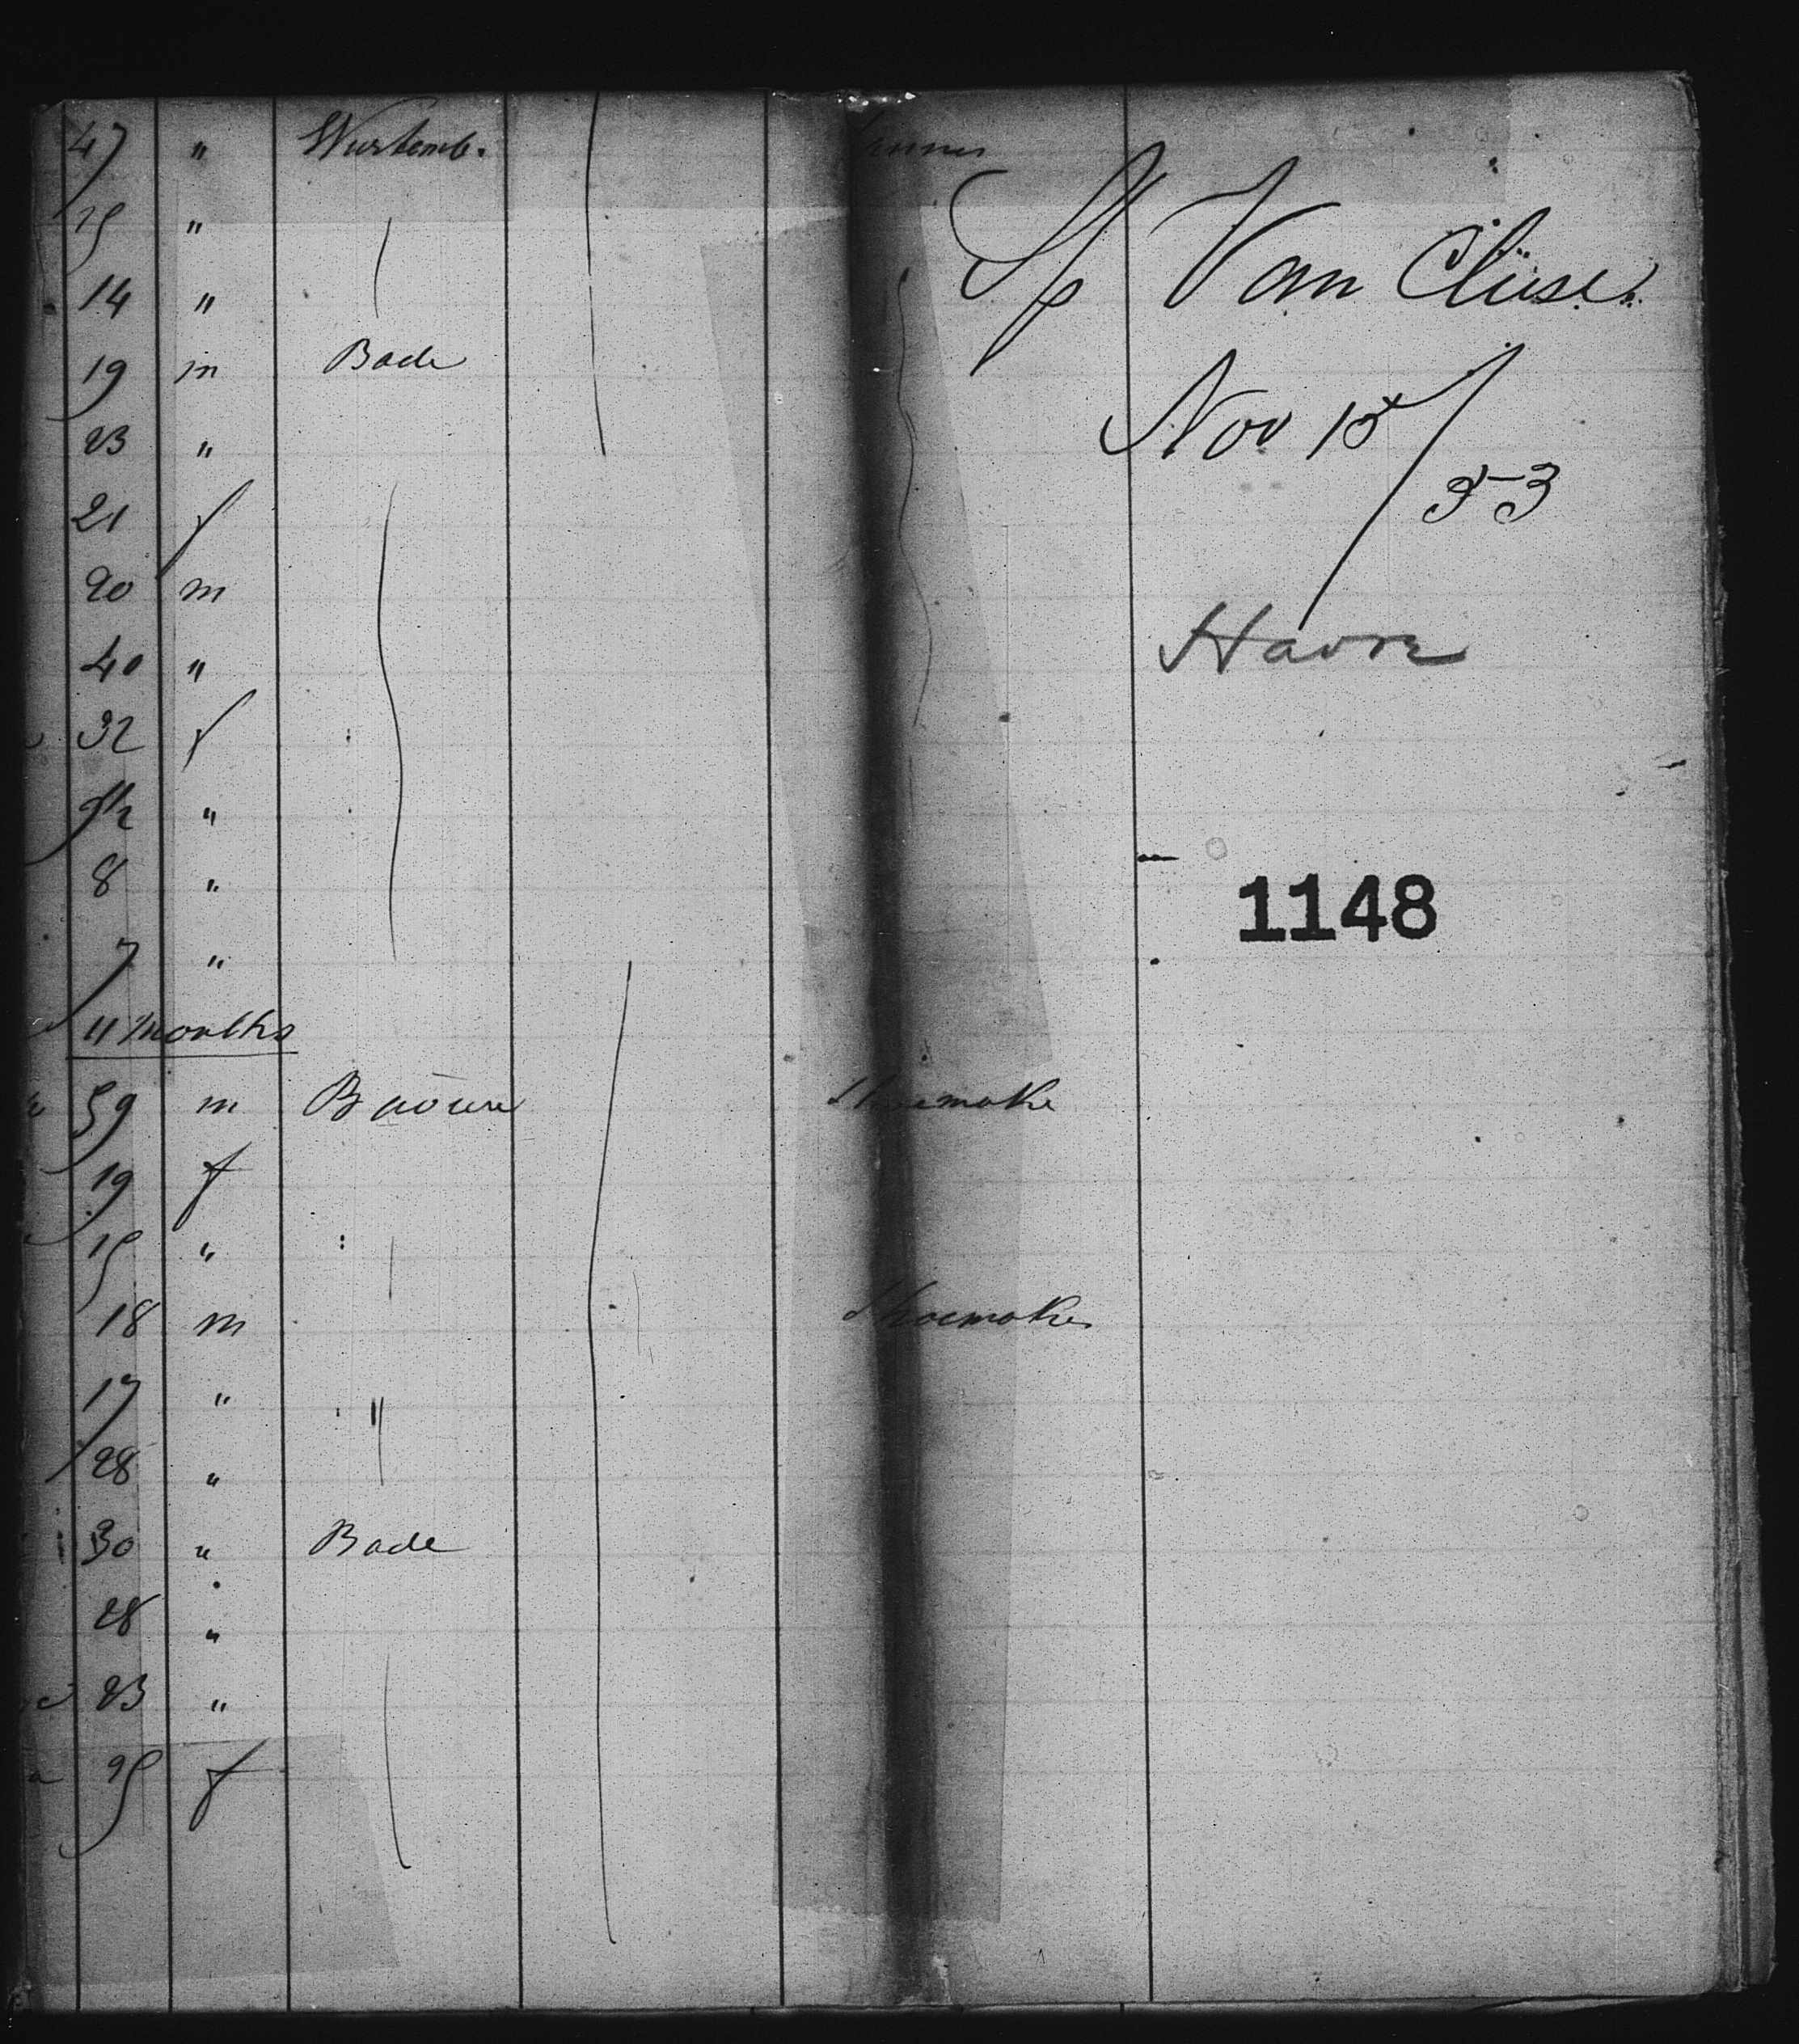 47 " Wurtemb.
15 "
14 "
19 m Bade
23 "
21 f
20 m
40 "
32 f
9 1/2 "
8 "
7 "
11 months
59 m Baviere Shoemaker
19 f
15 "
18 m Shoemaker
17 " "
28 "
30 " Bade
28 "
23 "
25 f
Sp Van Cluse
Nov 15/53
Havre
1148